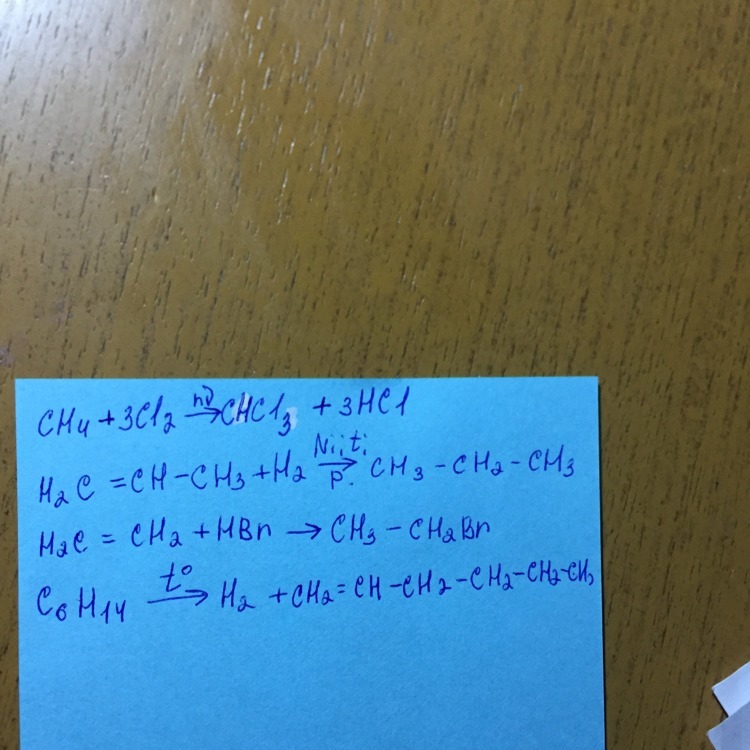 CH4 + 3Cl2 hν → CHCl3 + 3HCl
H2C = CH - CH3 + H2 Ni, t, p. → CH3 - CH2 - CH3
H2C = CH2 + HBr → CH3 - CH2Br
C6H14 t° → H2 + CH2 = CH - CH2 - CH2 - CH2 - CH3